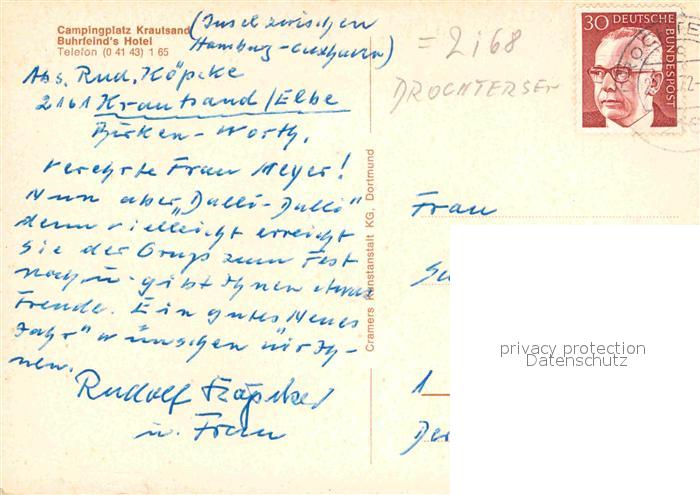 Campingplatz Krautsand
Buhrfeind's Hotel
Telefon (0 41 43) 1 65
(Insel zwischen
Hamburg-Cuxhaven)
Abs. Rud. Köpcke
2161 Krautsand/Elbe
Birken-Worth.
Verehrte Frau Meyer!
Nun aber „Dalli-Dalli"
denn vielleicht erreicht
Sie der Gruss zum Fest
noch u. gibt Ihnen etwas
Freude. Ein gutes Neues
Jahr" wünschen wir Ih-
nen.
Rudolf Köpcke
u. Frau
= 2168
DROCHTERSEN
30 DEUTSCHE
BUNDESPOST
Cramers Kunstanstalt KG, Dortmund
Frau
1
privacy protection
Datenschutz